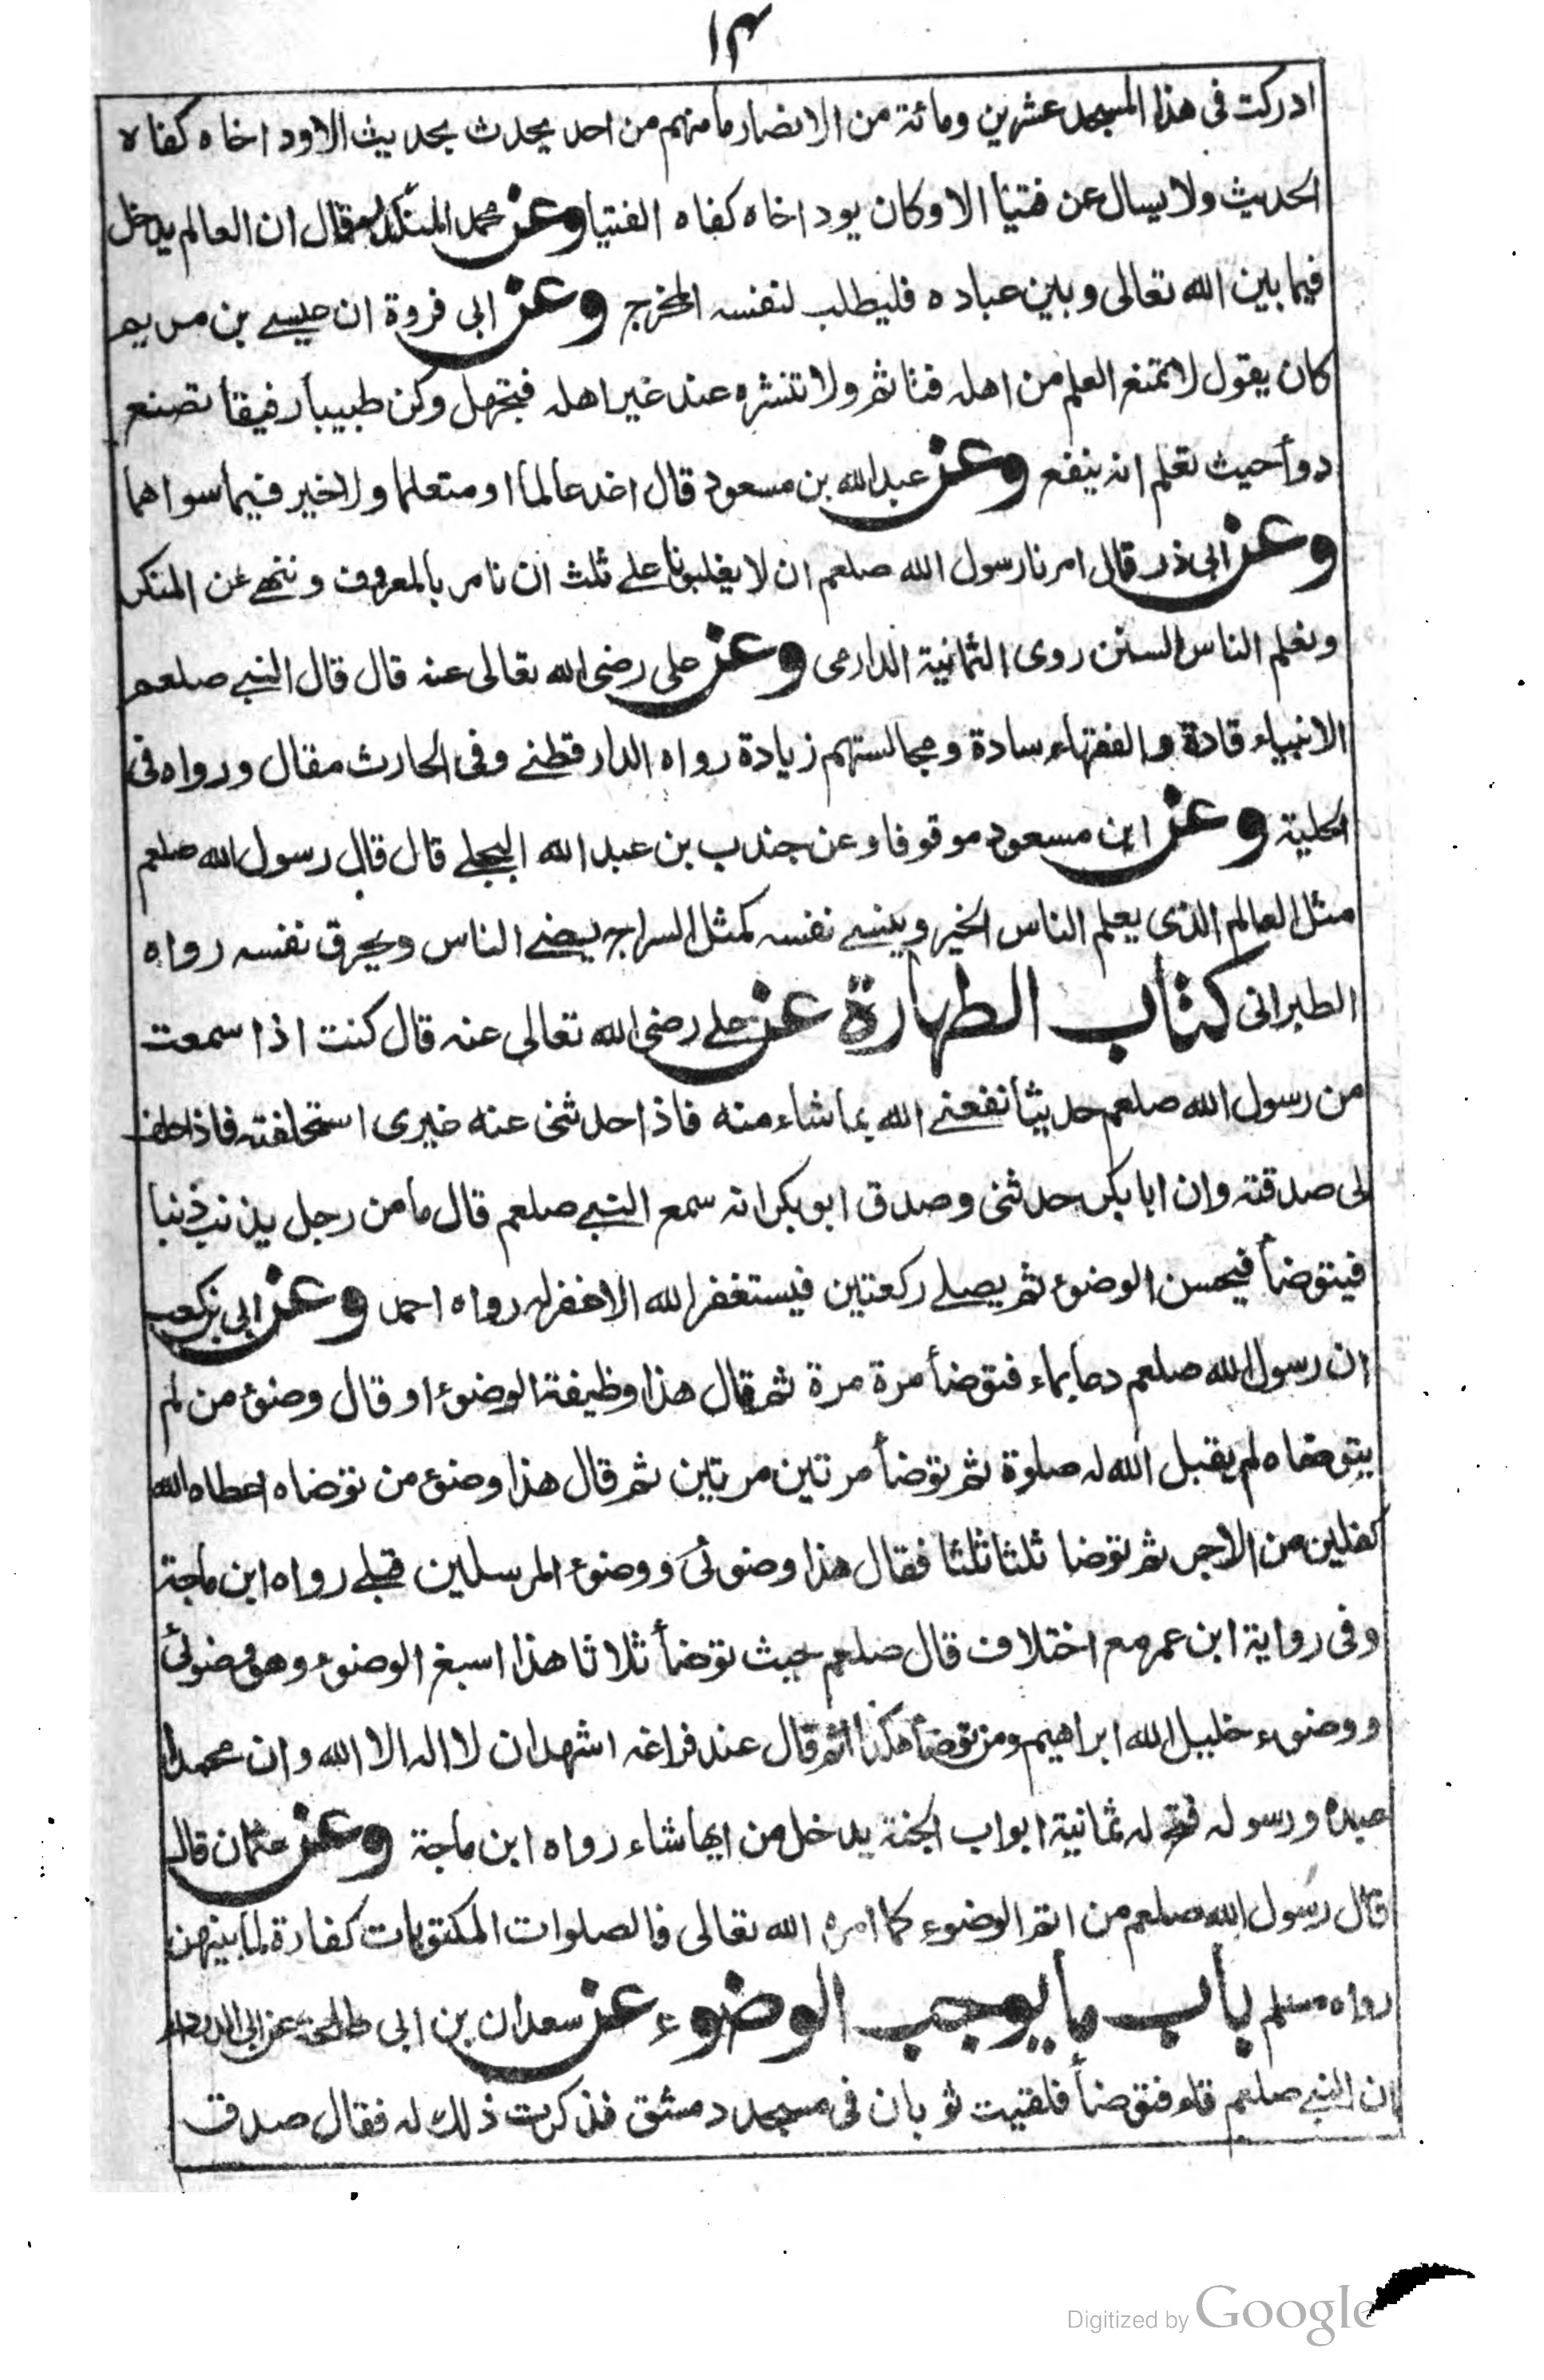 ١٣
ادركت فى هذا المسجد عشرين ومائة من الانصار ما منهم من احد يحدث بحديث الاود اخاه كفاه
الحديث ولا يسال عن فتيا الا وكان يود اخاه كفاه الفتيا وعن محمد المنكدر قال ان العالم يدخل
فيما بين الله تعالى وبين عباده فليطلب لنفسه المخرج وعن ابى فروة ان عيسے بن مريم
كان يقول لا تمنع العلم من اهله فتاثم ولا تنشره عند غير اهله فتجهل وكن طبيبا رفيقا تصنع
دوأحيث تعلم انه ينفع وعن عبد الله بن مسعود قال اغد عالما او متعلما ولا خير فيما سواهما
وعن ابى ذر قال امرنا رسول الله صلعم ان لا يغلبونا علے ثلث ان نامر بالمعروف و ننهے عن المنكر
ونعلم الناس السنن روى الثمانية الدارمى وعن على رضى الله تعالى عنه قال قال النبے صلعم
الانبياء قادة والفقهاء سادة ومجالستهم زيادة رواه الدارقطنے وفى الحارث مقال ورواه فى
الحلية وعن ابن مسعود موقوفا وعن جندب بن عبد الله البجلے قال قال رسول الله صلعم
مثل العالم الذى يعلم الناس الخير وينسے نفسه كمثل السراج يضئے الناس ويحرق نفسه رواه
الطبرانى كتاب الطهارة عن علے رضى الله تعالى عنه قال كنت اذا سمعت
من رسول الله صلعم حديثا نفعنے الله بما شاء منه فاذا حدثنى عنه غيرى استحلفته فاذا حلف
لى صدقته وان ابا بكر حدثنى وصدق ابو بكر انه سمع النبے صلعم قال ما من رجل يذنب ذنبا
فيتوضأ فيحسن الوضوء ثم يصلے ركعتين فيستغفر الله الا غفر له رواه احمد وعن ابى بن كعب
ان رسول الله صلعم دعا بماء فتوضأ مرة مرة ثم قال هذا وظيفة الوضوء او قال وضوء من لم
يتوضاه لم يقبل الله له صلوة ثم توضأ مرتين مرتين ثم قال هذا وضوء من توضاه اعطاه الله
كفلين من الاجر ثم توضا ثلثا ثلثا فقال هذا وضوئى ووضوء المرسلين قبلے رواه ابن ماجة
وفى رواية ابن عمر مع اختلاف قال صلعم حيث توضأ ثلاثا هذا اسبغ الوضوء وهو وضوئى
ووضوء خليل الله ابراهيم ومن توضأ هكذا ثم قال عند فراغه اشهد ان لا اله الا الله وان محمدا
عبده ورسوله فتح له ثمانية ابواب الجنة يدخل من ايها شاء رواه ابن ماجة وعن عثمان قال
قال رسول الله صلعم من اتم الوضوء كما امره الله تعالى فالصلوات المكتوبات كفارة لما بينهن
رواه مسلم باب ما يوجب الوضوء عن سعدان بن ابى طلحة عن ابى الدرداء
ان النبے صلعم قاء فتوضأ فلقيت ثوبان فى مسجد دمشق فذكرت ذلك له فقال صدق
Digitized by Google